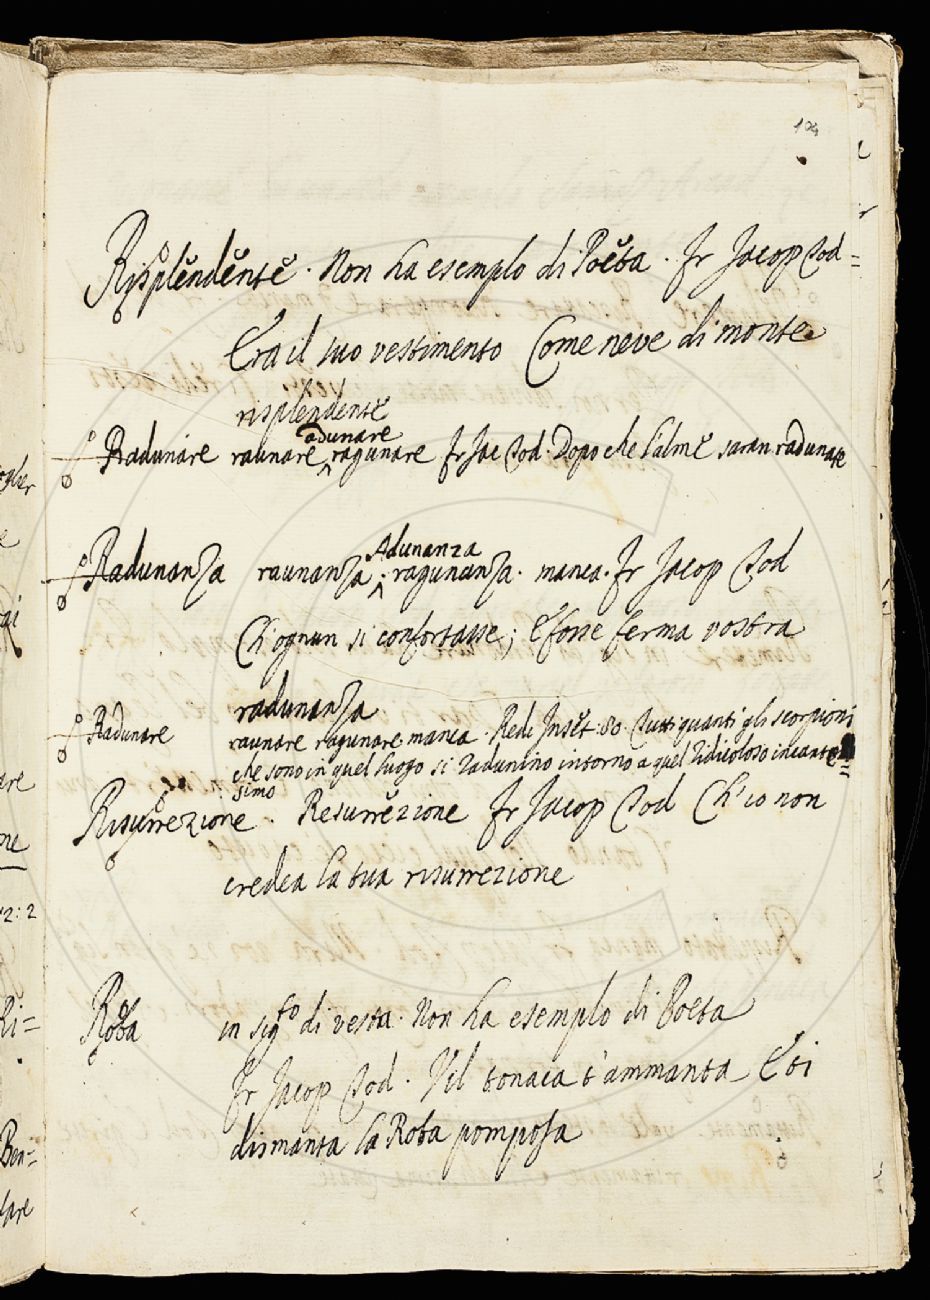 104
Risplendente. Non ha esemplo di Poeta. Fr Jacop Tod=
Era il suo vestimento Come neve di monte
risplendente
adunare
Radunare raunare ragunare Fr Jac Tod. Dopo che l'alme saran radunate
Adunanza
Radunanza raunanza. ragunanza. manca. Fr Jacop Tod
Ch'ognun si confortasse; E fosse ferma vostra
radunanza
Radunare raunare ragunare manca. Redi Inset: 80. Tutti quanti gli scorpioni
che sono in quel luogo si radunino intorno a quel ridicoloso incante
simo
Risurrezione. Resurrezione Fr Jacop Tod Ch'io non
credea la tua risurrezione
Roba in sigto di vesta. Non ha esemplo di Poeta
Fr Jacop Tod. Vil tonaca t'ammanta E ti
dismanta la Roba pomposa
are
ne
2:2
Ri=
Ben=